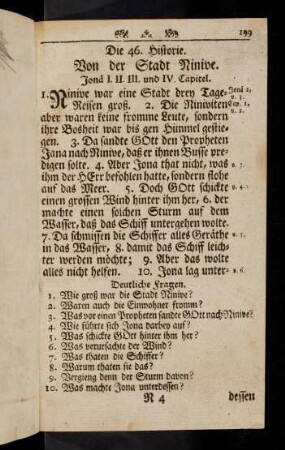 199
Die 46. Historie.
Von der Stadt Ninive.
Jonä I. II. III. und IV. Capitel.
1. Ninive war eine Stadt drey Tage-
Reisen groß. 2. Die Niniviten
aber waren keine fromme Leute, sondern
ihre Bosheit war bis gen Himmel gestie-
gen. 3. Da sandte GOtt den Propheten
Jona nach Ninive, daß er ihnen Busse pre-
digen solte. 4. Aber Jona that nicht, was
ihm der HErr befohlen hatte, sondern flohe
auf das Meer. 5. Doch GOtt schickte
einen grossen Wind hinter ihm her, 6. der
machte einen solchen Sturm auf dem
Wasser, daß das Schiff untergehen wolte.
7. Da schmissen die Schiffer alles Geräthe
ins Wasser, 8. damit das Schiff leich-
ter werden möchte; 9. Aber das wolte
alles nicht helfen. 10. Jona lag unter-
v. 3.
v. 4.
v. 5.
v. 6.
Deutliche Fragen.
1. Wie groß war die Stadt Ninive?
2. Waren auch die Einwohner fromm?
3. Was vor einen Propheten sandte GOtt nach Ninive?
4. Wie führte sich Jona darbey auf?
5. Was schickte GOtt hinter ihm her?
6. Was verursachte der Wind?
7. Was thaten die Schiffer?
8. Warum thaten sie das?
9. Vergieng denn der Sturm davon?
10. Was machte Jona unterdessen?
N 4 dessen